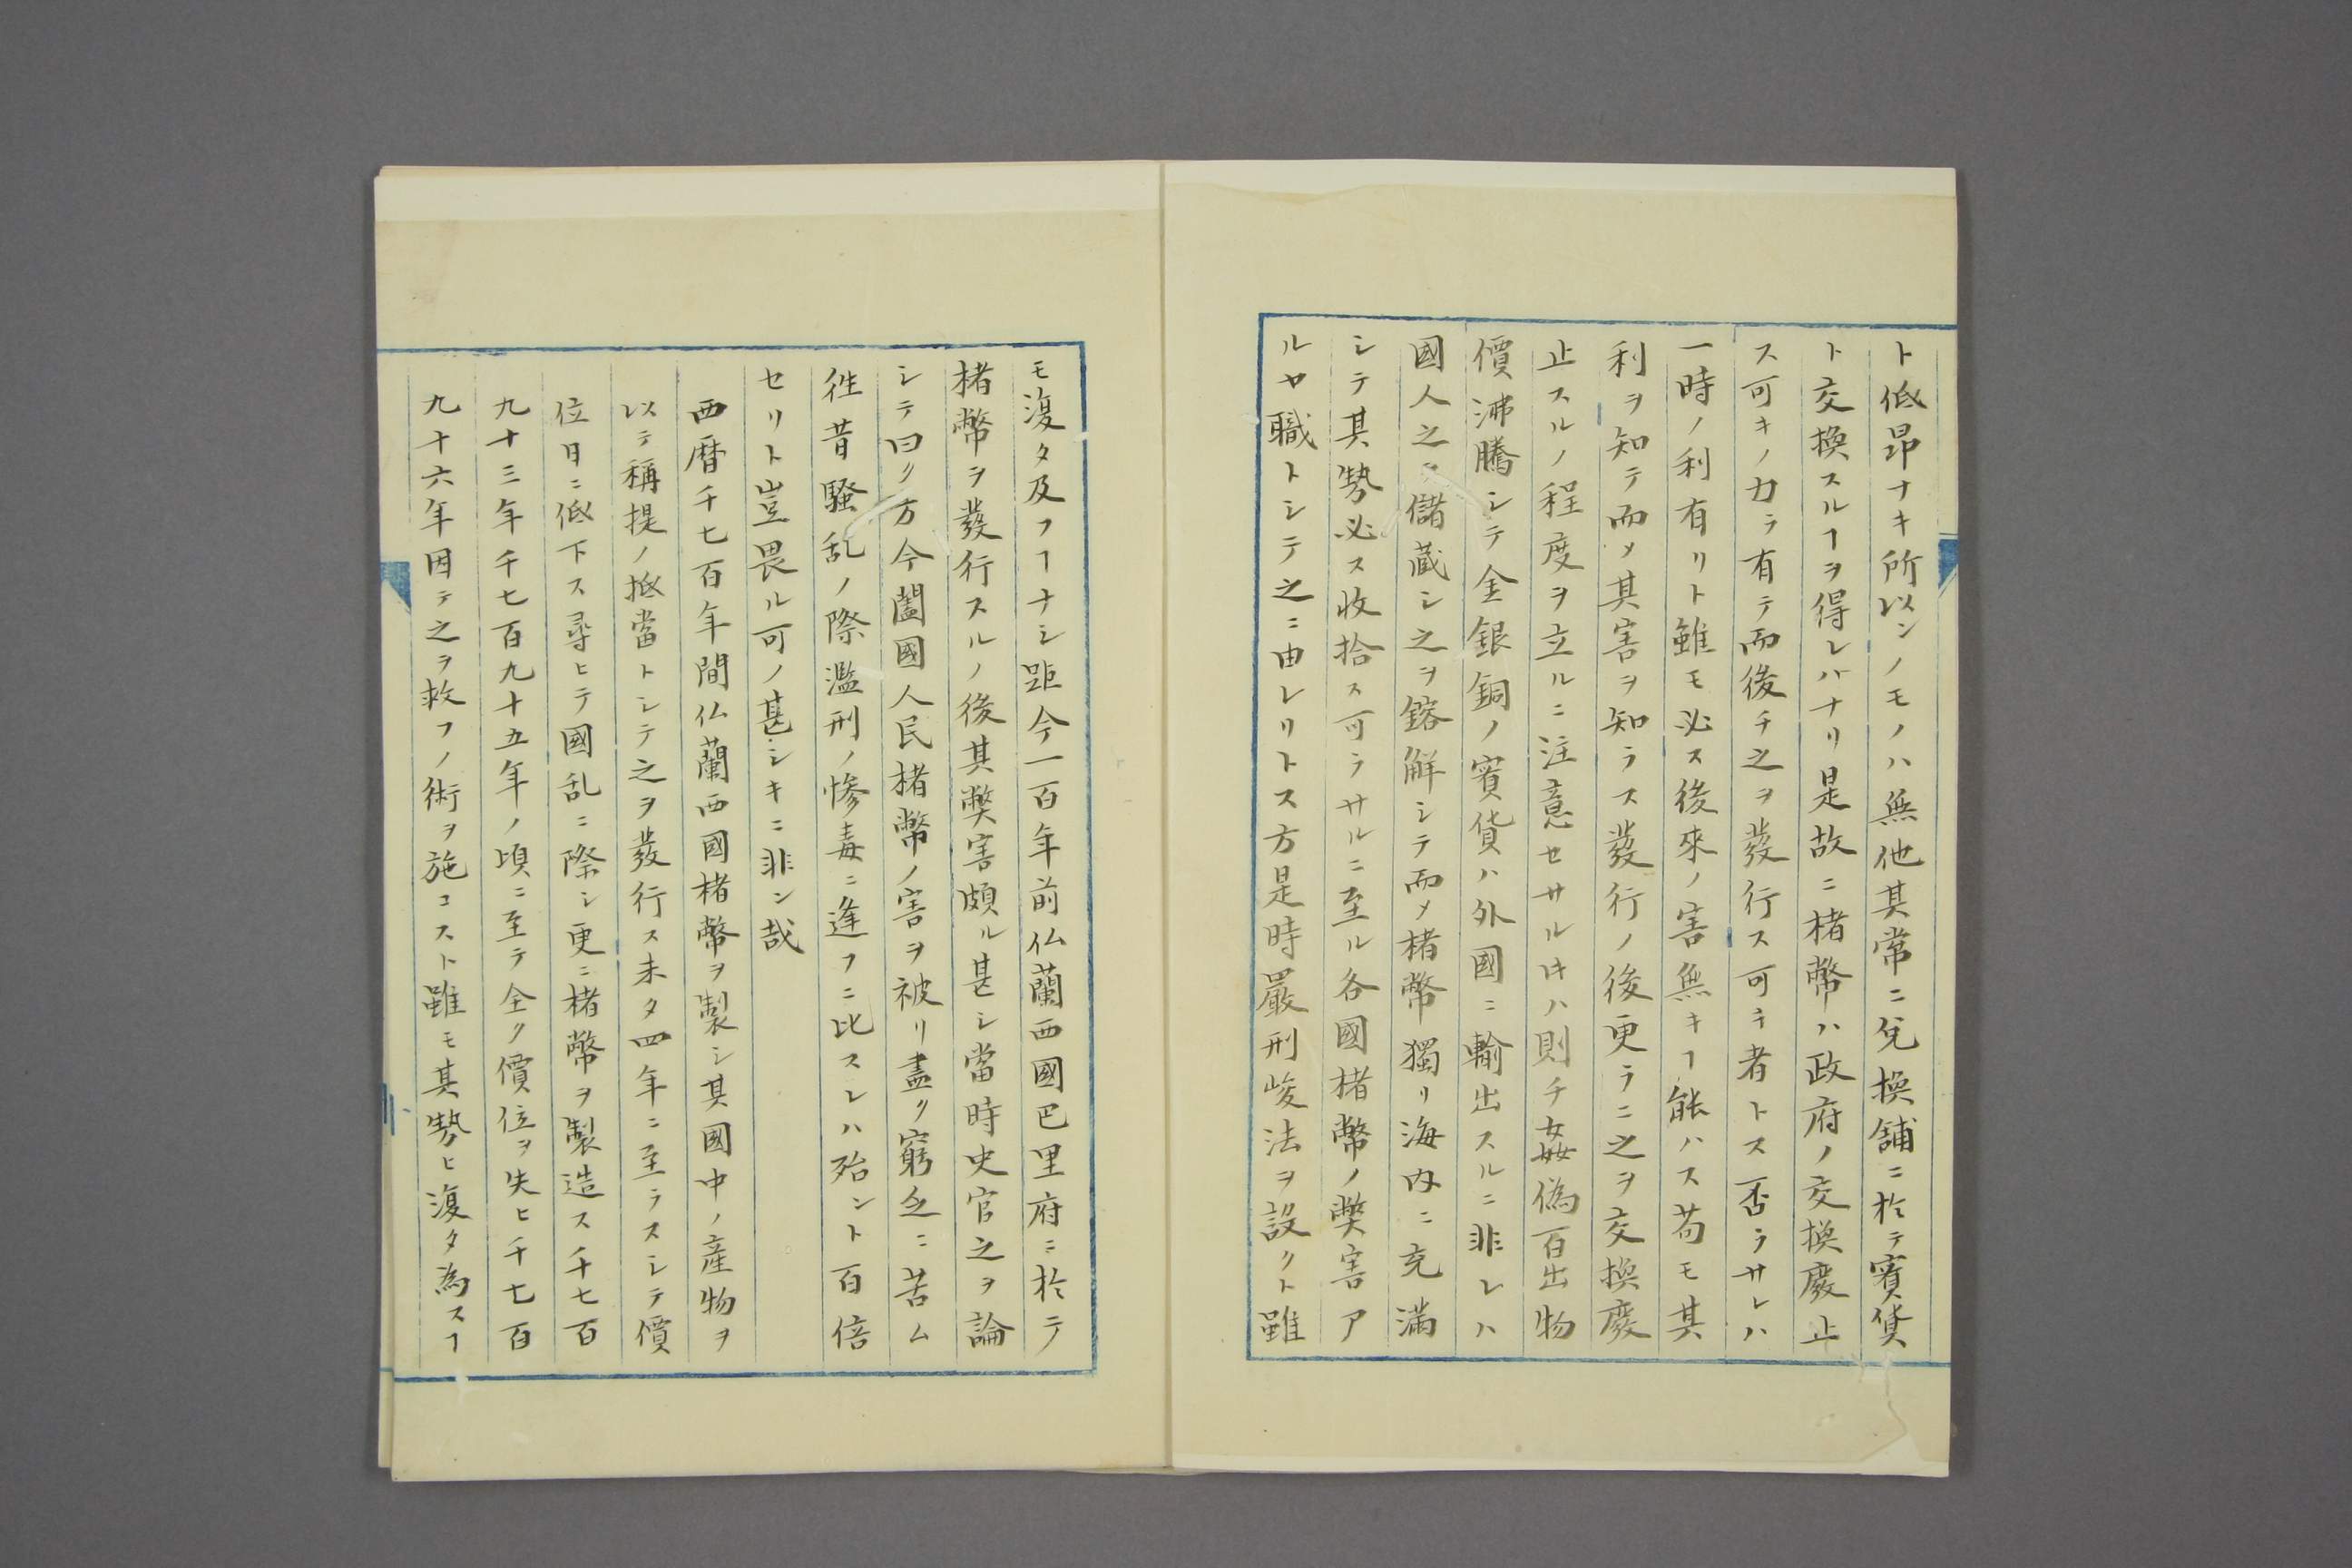 ト低昂ナキ所以ンノモノハ無他其常ニ兌換舗ニ於テ寳貨
ト交換スルヿヲ得レバナリ是故ニ楮幣ハ政府ノ交換廢止
ス可キノ力ラ有テ而後チ之ヲ發行ス可キ者トス否ラサレハ
一時ノ利有リト雖モ必ス後來ノ害無キヿ能ハス苟モ其
利ヲ知テ而メ其害ヲ知ラス發行ノ後更ラニ之ヲ交換廢
止スルノ程度ヲ立ルニ注意セサル𪜈ハ則チ姦偽百出物
價沸騰シテ金銀銅ノ寳貨ハ外國ニ輸出スルニ非レハ
國人之ヲ儲蔵シ之ヲ鎔解シテ而メ楮幣獨リ海内ニ充満
シテ其勢必ス收拾ス可ラサルニ至ル各國楮幣ノ獘害ア
ルヤ職トシテ之ニ由レリトス方是時嚴刑峻法ヲ設クト雖
モ復タ及フヿナシ距今一百年前仏蘭西國巴里府ニ於テ
楮幣ヲ發行スルノ後其獘害頗ル甚シ當時史官之ヲ論
シテ曰ク方今闔國人民楮幣ノ害ヲ被リ盡ク窮乏ニ苦ム
徃昔騒乱ノ際濫刑ノ惨毒ニ逢フニ比スレハ殆ント百倍
セリト豈畏ル可ノ甚シキニ非ン哉
西暦千七百年間仏蘭西國楮幣ヲ製シ其國中ノ産物ヲ
以テ稱提ノ抵當トシテ之ヲ發行ス未タ四年ニ至ラスシテ價
位日ニ低下ス尋ヒテ國乱ニ際シ更ニ楮幣ヲ製造ス千七百
九十三年千七百九十五年ノ頃ニ至テ全ク價位ヲ失ヒ千七百
九十六年因テ之ヲ救フノ術ヲ施コスト雖モ其勢ヒ復タ為スヿ